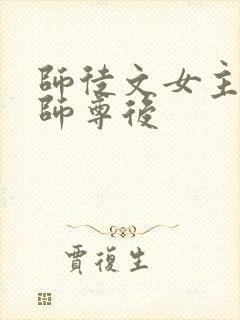 師徒文女主
師尊後
賈復生